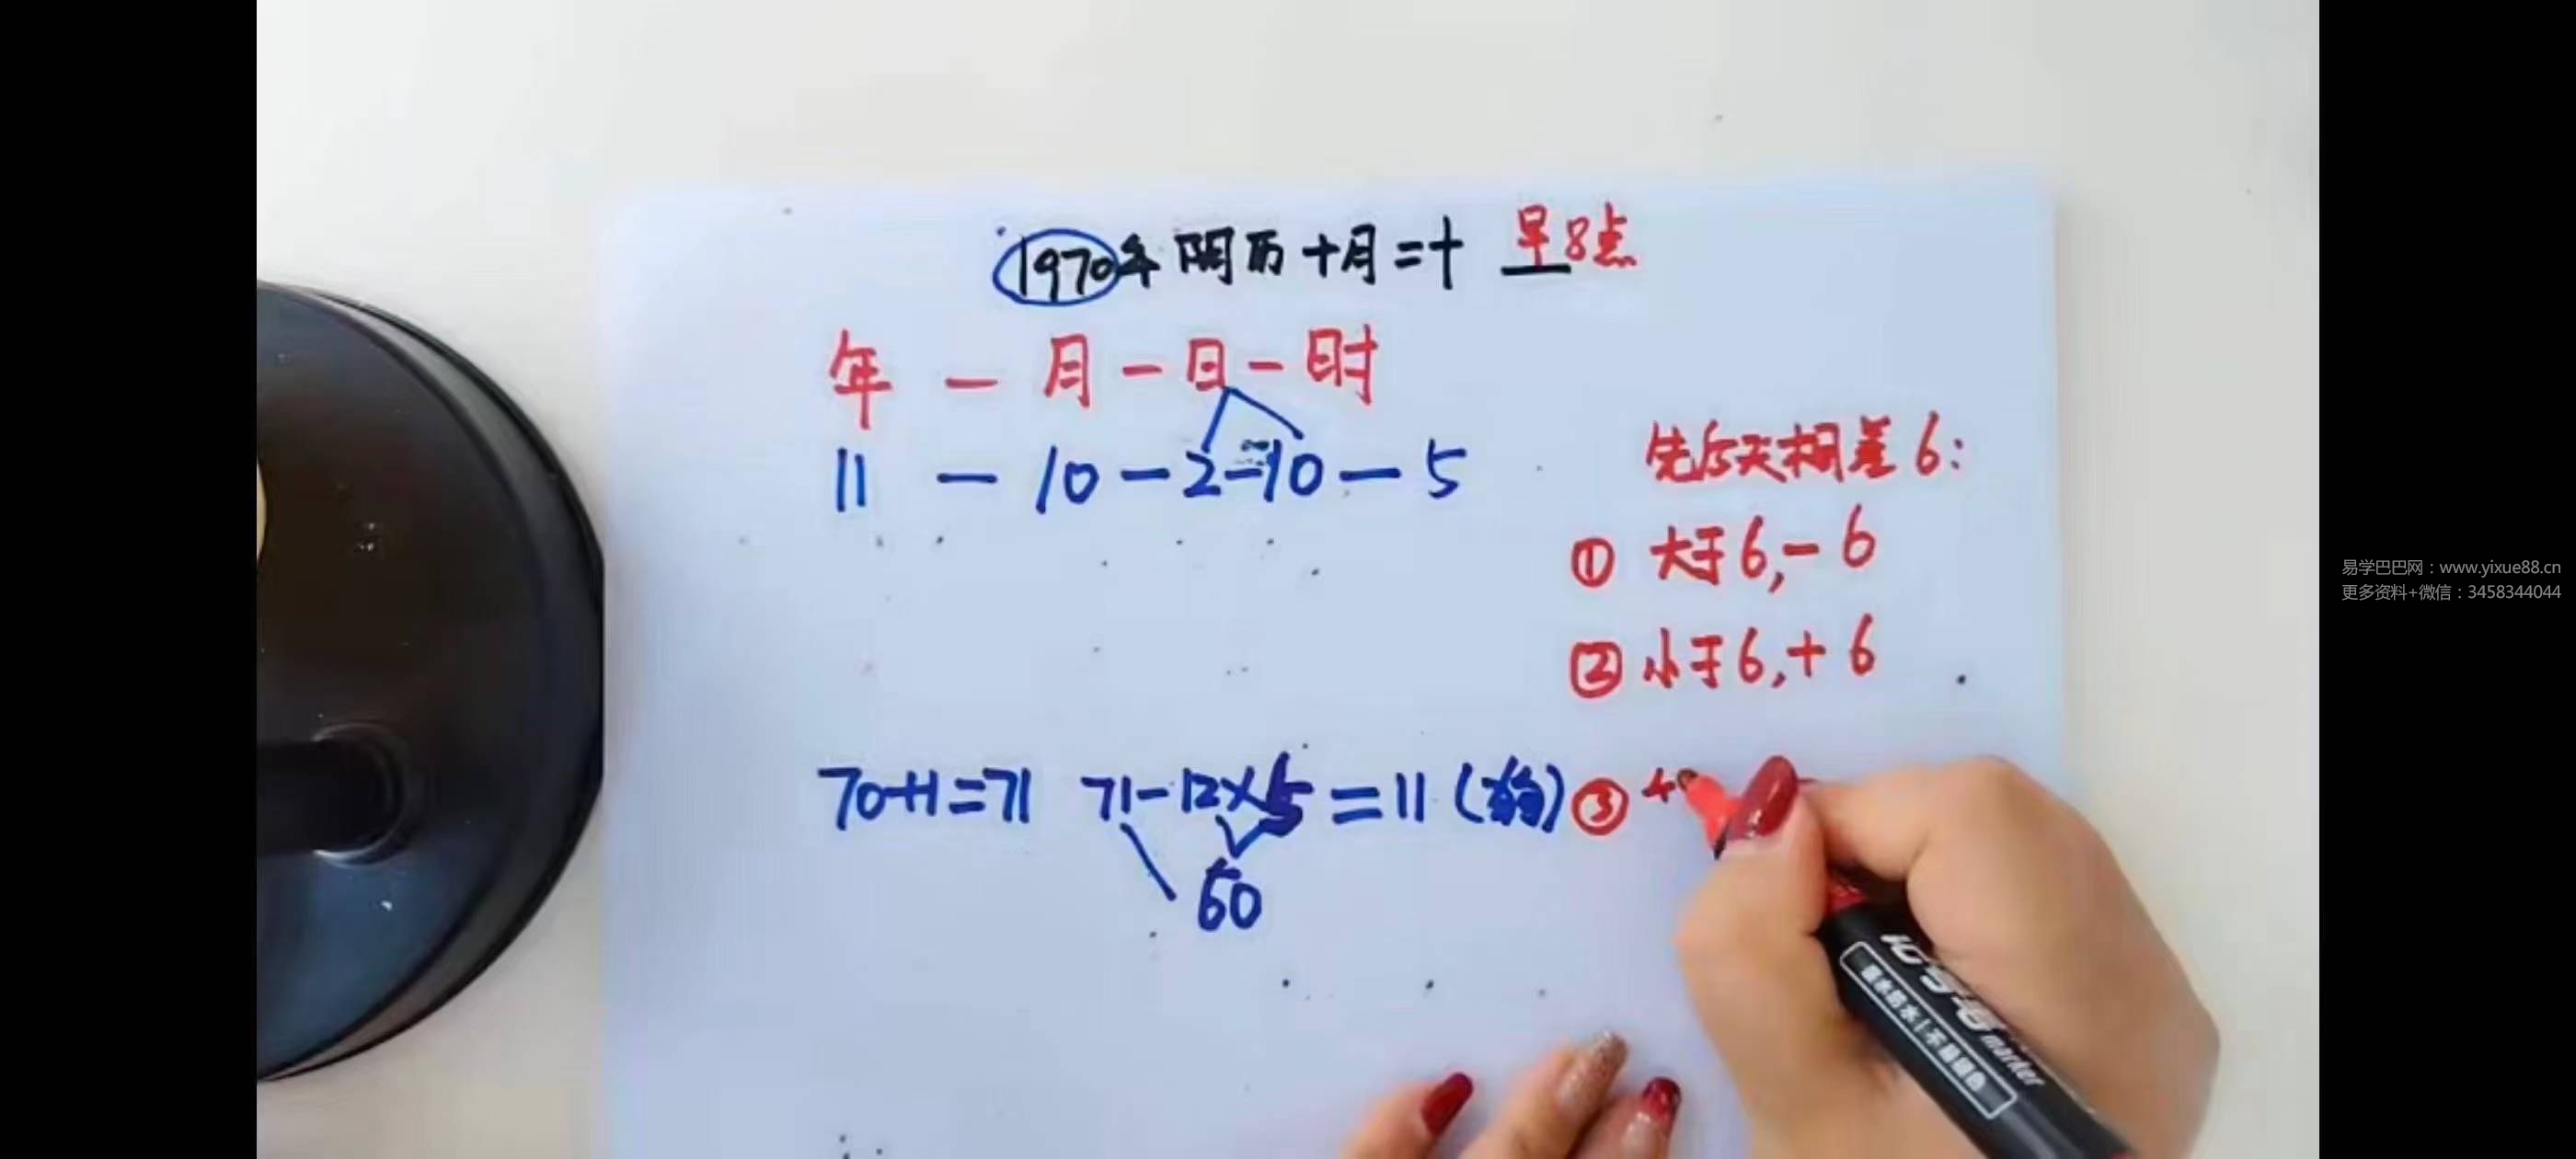 1970年 阴历十月二十 早8点
年 — 月 — 日 — 时
11 — 10 — 2 = 10 — 5
先后天相差6:
① 大于6,-6
② 小于6,+6
70+1=71 71-12×5=11(狗) ③
60
记号笔 marker
易学巴巴网：www.yixue88.cn
更多资料+微信：3458344044